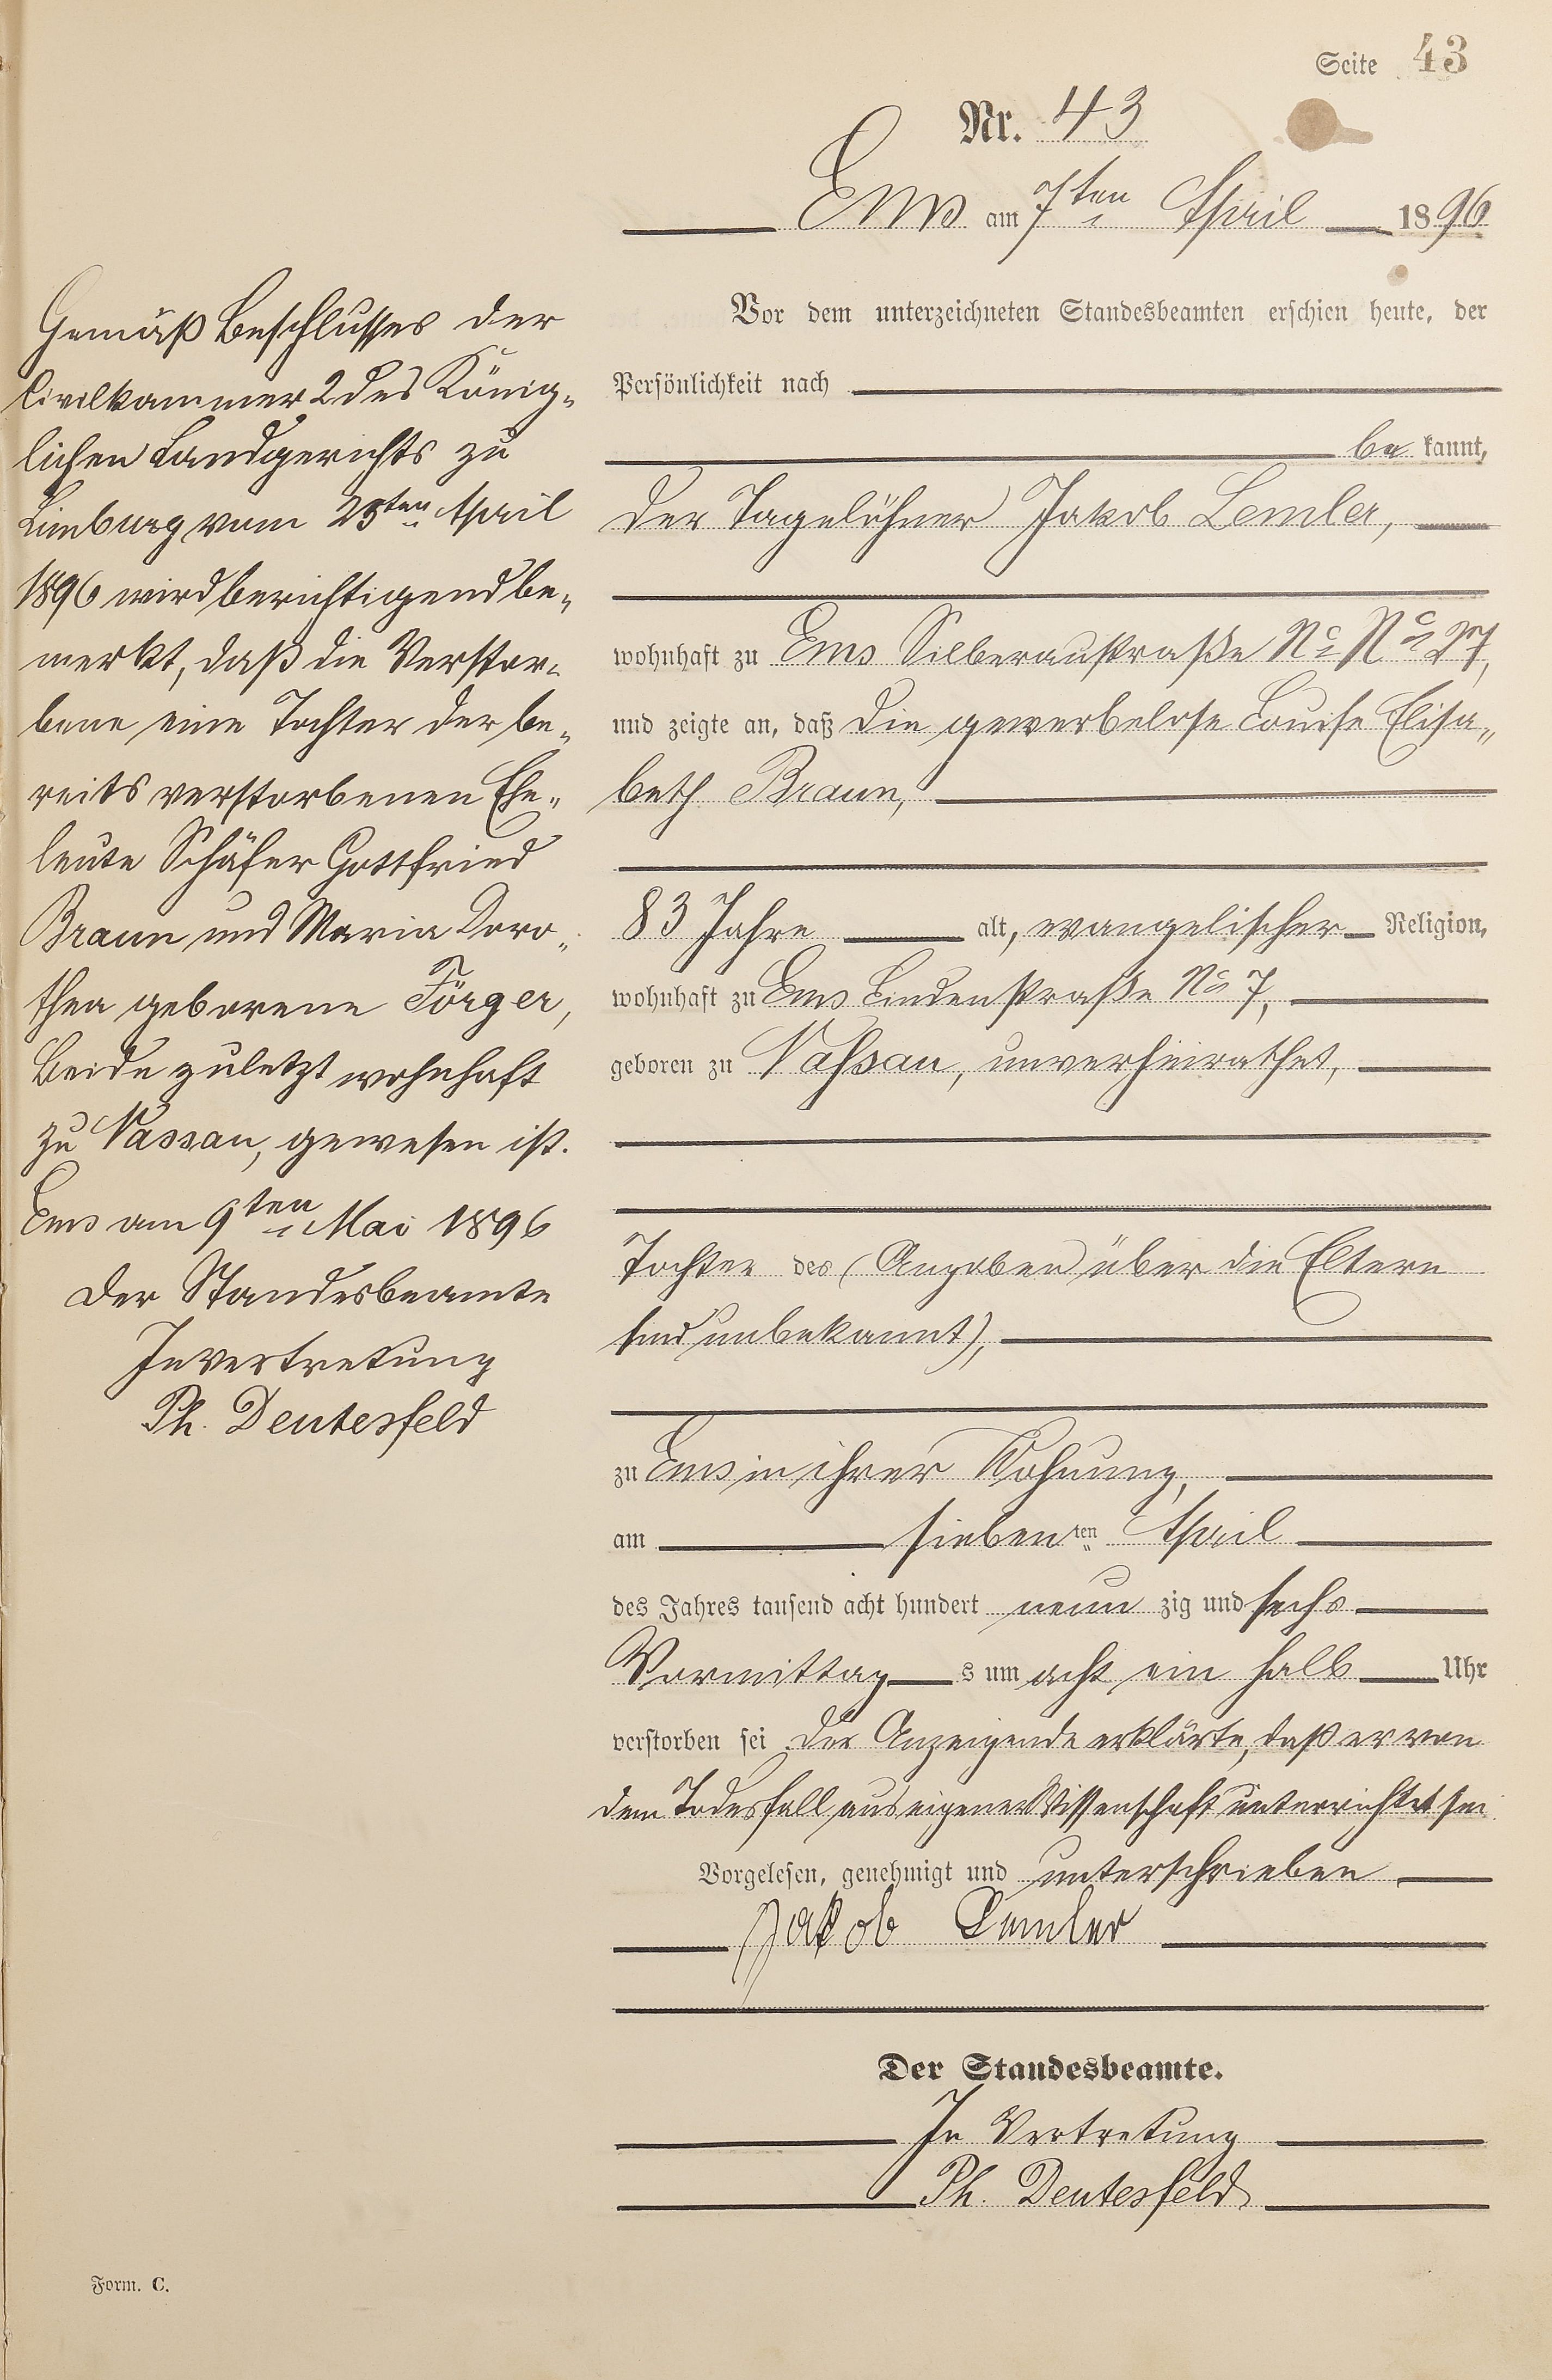 Seite 43
Nr. 43
Ems am 7ten April 1896
Vor dem unterzeichneten Standesbeamten erschien heute, der
Persönlichkeit nach
bekannt,
der Tagelöhner Jakob Lemler,
wohnhaft zu Ems Silberaustraße No No 27,
und zeigte an, daß die gewerbelose Louise Elisa„
beth Braun,
83 Jahre alt, evangelischer Religion,
wohnhaft zu Ems Lindenstraße No 7,
geboren zu Nassau, unverheirathet,
Tochter des (Angaben über die Eltern
sind unbekannt),
zu Ems in ihrer Wohnung,
am siebenten April
des Jahres tausend acht hundert neunzig und sechs
Vormittags um acht ein halb Uhr
verstorben sei. Der Anzeigende erklärte, daß er von
dem Todesfall aus eigener Wissenschaft unterrichtet sei.
Vorgelesen, genehmigt und unterschrieben
Jakob Lemler
Der Standesbeamte.
In Vertretung
Ph. Deutesfeld
Gemäß Beschlusses der
Civilkammer 2 des König„
lichen Landgerichts zu
Limburg vom 25ten April
1896 wird berichtigend be„
merkt, daß die Verstor„
bene eine Tochter der be„
reits verstorbenen Ehe„
leute Schäfer Gottfried
Braun und Maria Doro„
thea geborene Förger,
Beide zuletzt wohnhaft
zu Nassau, gewesen ist.
Ems am 9ten Mai 1896
Der Standesbeamte
In Vertretung
Ph. Deutesfeld
Form. C.